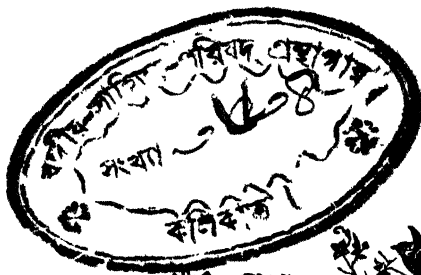 বঙ্গীয়-সাহিত্য-পরিষদ্ গ্রন্থাগার
সংখ্যা
কলিকাতা